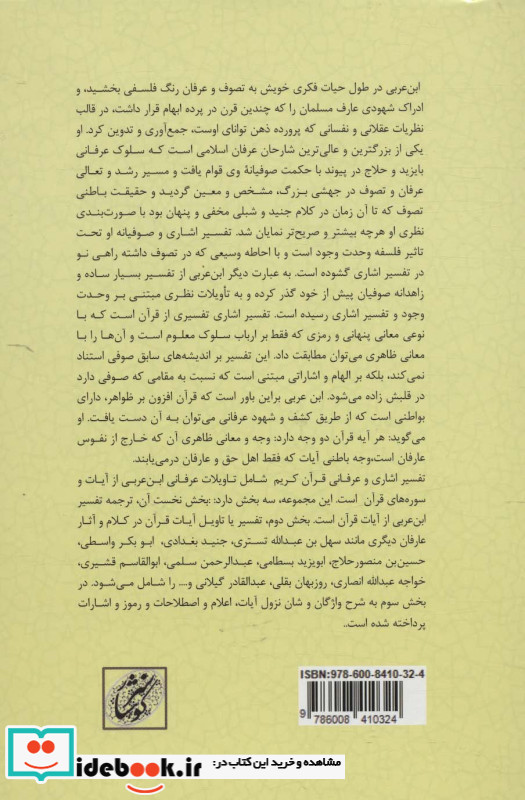 ابن‌عربی در طول حیات فکری خویش به تصوف و عرفان رنگ فلسفی بخشید، و
ادراک شهودی عارف مسلمان را که چندین قرن در پرده ابهام قرار داشت، در قالب
نظریات عقلانی و نفسانی که پرورده ذهن توانای اوست، جمع‌آوری و تدوین کرد. او
یکی از بزرگترین و عالی‌ترین شارحان عرفان اسلامی است که سلوک عرفانی
بایزید و حلاج در پیوند با حکمت صوفیانهٔ وی قوام یافت و مسیر رشد و تعالی
عرفان و تصوف در جهشی بزرگ، مشخص و معین گردید و حقیقت باطنی
تصوف که تا آن زمان در کلام جنید و شبلی مخفی و پنهان بود با صورت‌بندی
نظری او هرچه بیشتر و صریح‌تر نمایان شد. تفسیر اشاری و صوفیانه او تحت
تاثیر فلسفه وحدت وجود است و با احاطه وسیعی که در تصوف داشته راهی نو
در تفسیر اشاری گشوده است. به عبارت دیگر ابن‌عربی از تفسیر بسیار ساده و
زاهدانه صوفیان پیش از خود گذر کرده و به تأویلات نظری مبتنی بر وحدت
وجود و تفسیر اشاری رسیده است. تفسیر اشاری تفسیری از قرآن است که با
نوعی معانی پنهانی و رمزی که فقط بر ارباب سلوک معلوم است و آن‌ها را با
معانی ظاهری می‌توان مطابقت داد. این تفسیر بر اندیشه‌های سابق صوفی استناد
نمی‌کند، بلکه بر الهام و اشاراتی مبتنی است که نسبت به مقامی که صوفی دارد
در قلبش زاده می‌شود. ابن عربی براین باور است که قرآن افزون بر ظواهر، دارای
بواطنی است که از طریق کشف و شهود عرفانی می‌توان به آن دست یافت. او
می‌گوید: هر آیه قرآن دو وجه دارد: وجه و معانی ظاهری آن که خارج از نفوس
عارفان است،وجه باطنی آیات که فقط اهل حق و عارفان درمی‌یابند.
تفسیر اشاری و عرفانی قرآن کریم شامل تاویلات عرفانی ابن‌عربی از آیات و
سوره‌های قرآن است. این مجموعه، سه بخش دارد: :بخش نخست آن، ترجمه تفسیر
ابن‌عربی از آیات قرآن است. بخش دوم، تفسیر یا تاویل آیات قرآن در کلام و آثار
عارفان دیگری مانند سهل بن عبدالله تستری، جنید بغدادی، ابو بکر واسطی،
حسین‌بن منصورحلاج، ابویزید بسطامی، عبدالرحمن سلمی، ابوالقاسم قشیری،
خواجه عبدالله انصاری، روزبهان بقلی، عبدالقادر گیلانی و.... را شامل می‌شود. در
بخش سوم به شرح واژگان و شان نزول آیات، اعلام و اصطلاحات و رموز و اشارات
پرداخته شده است..
ISBN: 978-600-8410-32-4
9 786008 410324
مشاهده و خرید این کتاب در:
idebook.ir